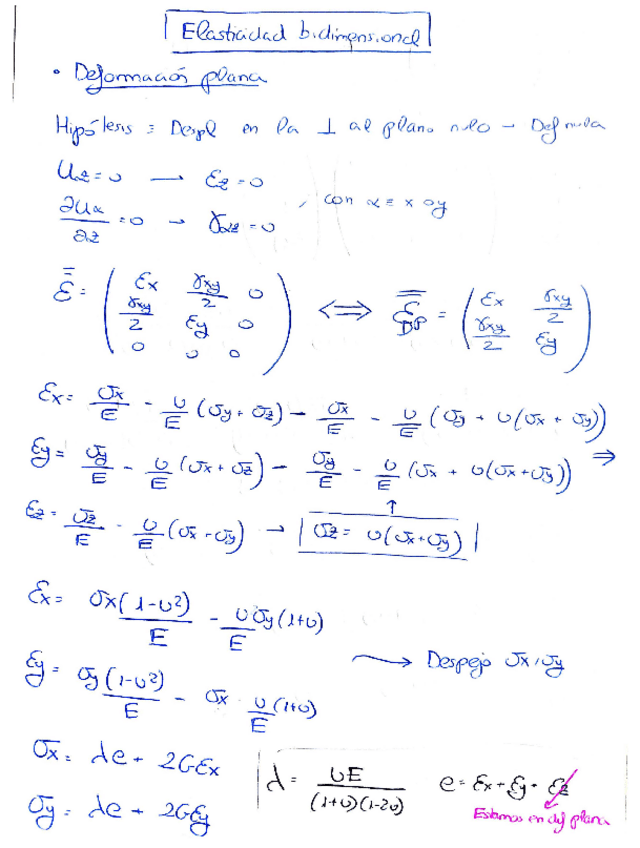 Elasticidad bidimensional
• Deformación plana
Hipótesis ≡ Despl en la ⊥ al plano nulo → Def nula
Uz=0 → εz=0
∂Uα/∂z=0 → γαz=0 , con α ≡ x o y
ε̿ = ( εx γxy/2 0 ; γxy/2 εy 0 ; 0 0 0 ) ⟺ ε̿DP = ( εx γxy/2 ; γxy/2 εy )
εx= σx/E - υ/E (σy+σz) → σx/E - υ/E (σy + υ(σx + σy))
εy= σy/E - υ/E (σx+σz) → σy/E - υ/E (σx + υ(σx+σy)) ⇒
εz= σz/E - υ/E (σx+σy) → σz= υ(σx+σy)
εx= σx(1-υ²)/E - υσy/E (1+υ)
εy= σy(1-υ²)/E - σx · υ/E (1+υ) → Despejo σx, σy
σx= λe + 2Gεx
σy= λe + 2Gεy
λ = υE/((1+υ)(1-2υ)) e= εx+εy+εz
Estamos en def plana